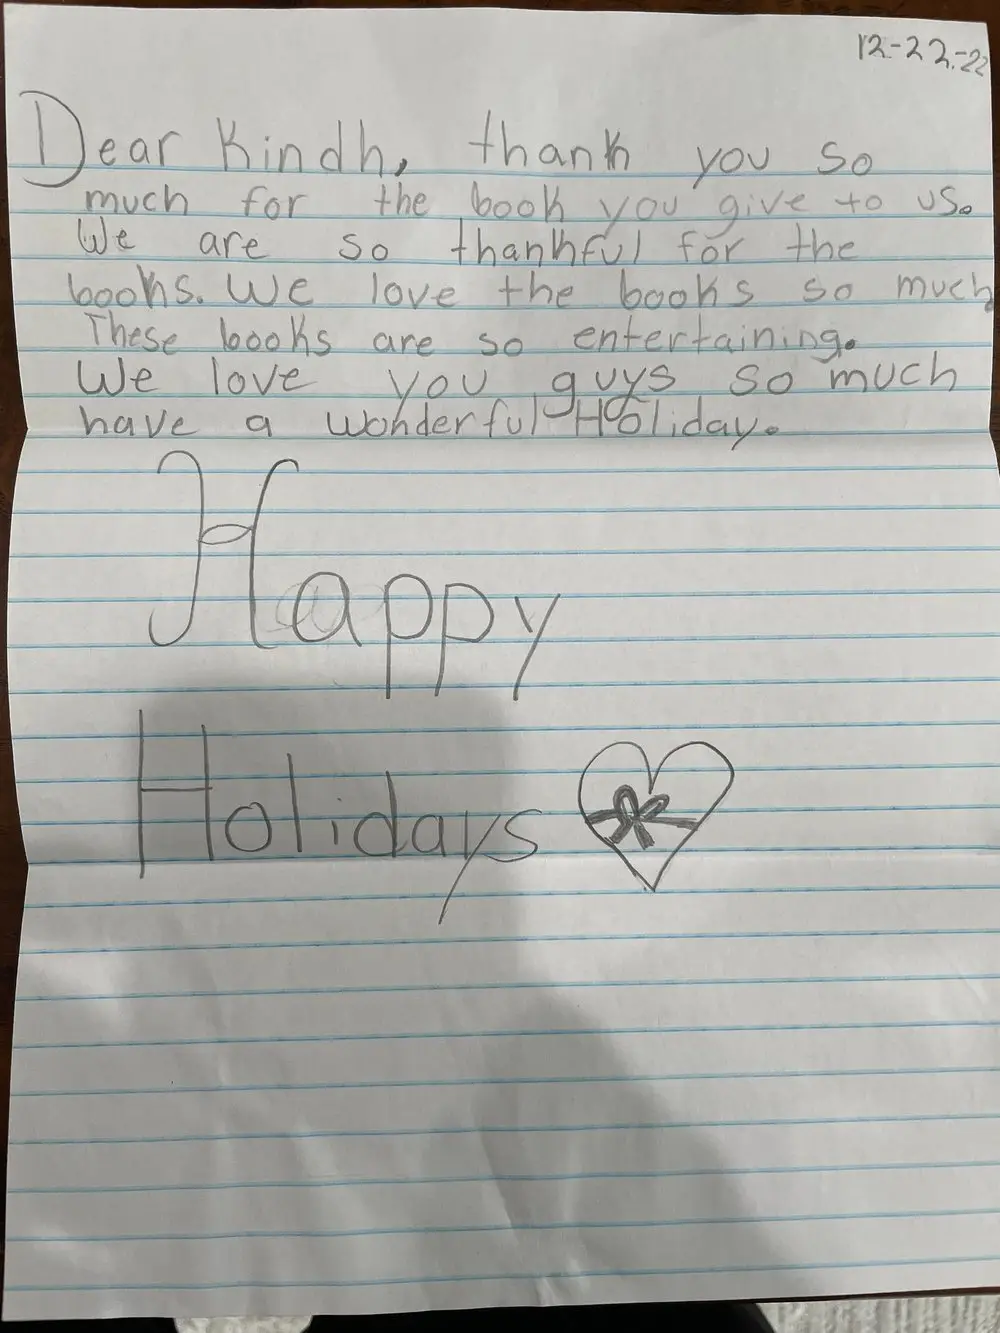 12-22-22
Dear Kindh, thank you so
much for the book you give to us.
We are so thankful for the
books. We love the books so much
These books are so entertaining.
We love you guys so much
have a wonderful Holiday.
Happy
Holidays